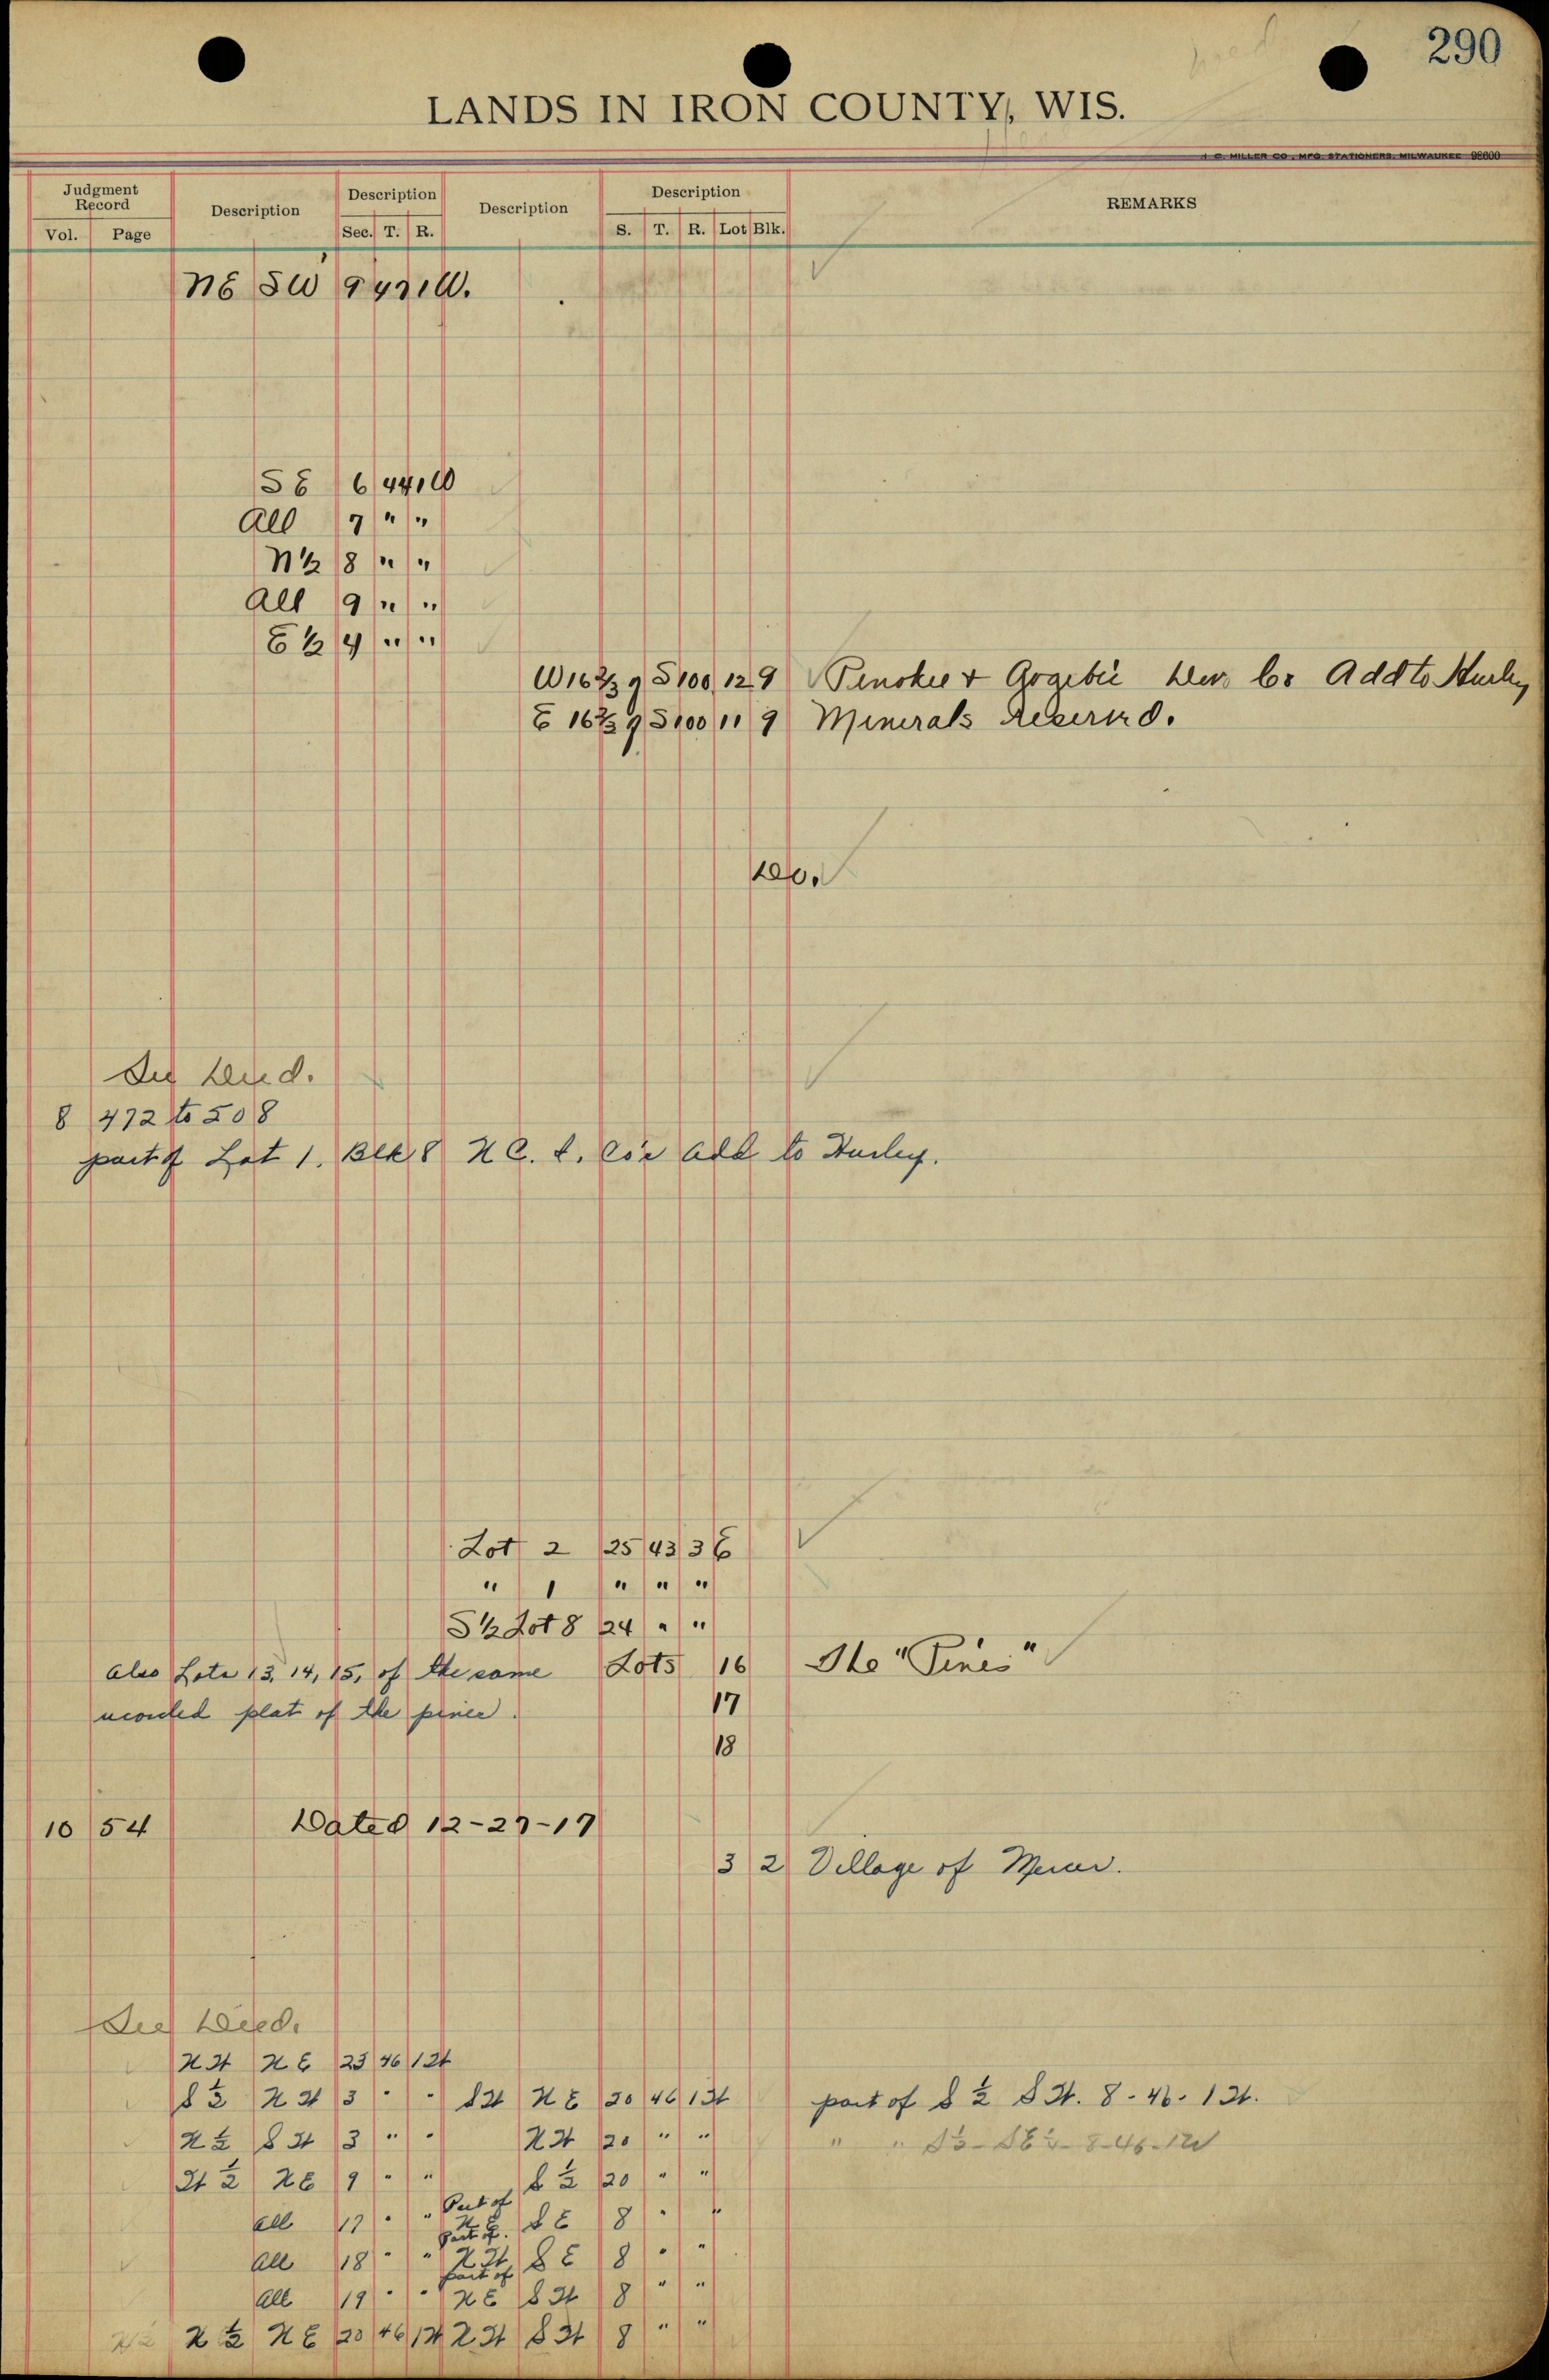 290
LANDS IN IRON COUNTY, WIS.
MILLER CO., MFG. STATIONERS, MILWAUKEE 98600
Judgment Record Description Description Description Description REMARKS
Vol. Page Sec. T. R. S. T. R. Lot Blk.
NE SW 9 47 1W.
SE 6 44 1W
All 7 " "
N½ 8 " "
All 9 " "
E½ 4 " "
W16⅔ of S100 12 9 Penokee + Gogebic Dev. Co. Add to Hurley
E 16⅔ of S100 11 9 Minerals Reserved.
See Deed.
8 472 to 508
part of Lot 1. Blk 8 N.C. Co's Add to Hurley.
Lot 2 25 43 3E
" 1 " " "
S½ Lot 8 24 " "
also Lots 13, 14, 15, of the same Lots 16 The "Pines"
recorded plat of the pines. 17
18
10 54 Dated 12-27-17
3 2 Village of Mercer.
See Deed.
NW NE 23 46 1W
S½ NW 3 " " SW NE 20 46 1W part of S½ SW. 8-46-1W.
N½ SW 3 " " NW 20 " " " " 8-46-1W
W½ NE 9 " " S½ 20 " "
all 17 " " Part of NE SE 8 " "
all 18 " " Part of NW SE 8 " "
all 19 " " part of NE SW 8 " "
N½ NE 20 46 1W NW SW 8 " "